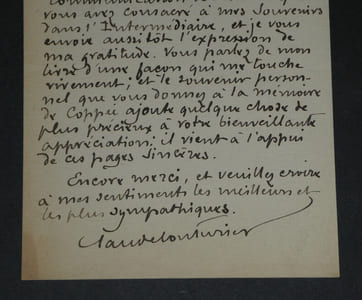 vous avez consacré à mes Souvenirs
dans l'Intermédiaire, et je vous
envoie aussitôt l'expression de
ma gratitude. Vous parlez de mon
livre d'une façon qui me touche
vivement ; et le souvenir person-
nel que vous donnez à la mémoire
de Coppée ajoute quelque chose de
plus précieux à votre bienveillante
appréciation : il vient à l'appui
de ces pages sincères.
Encore merci, et veuillez croire
à mes sentiments les meilleurs et
les plus sympathiques.